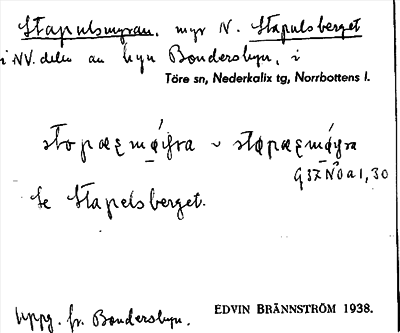 Stapulsmyran, myr N. Stapulsberget
i NV. delen av byn Bondersbyn, i
Töre sn, Nederkalix tg, Norrbottens l.
Se Stapelsberget.
Uppg. fr. Bondersbyn.
EDVIN BRÄNNSTRÖM 1938.